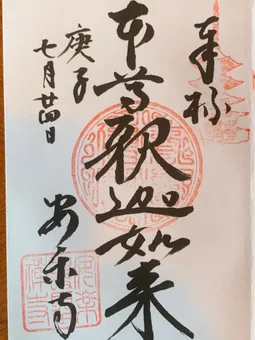 奉拝
本尊釈迦如来
庚子
七月廿四日
安楽寺